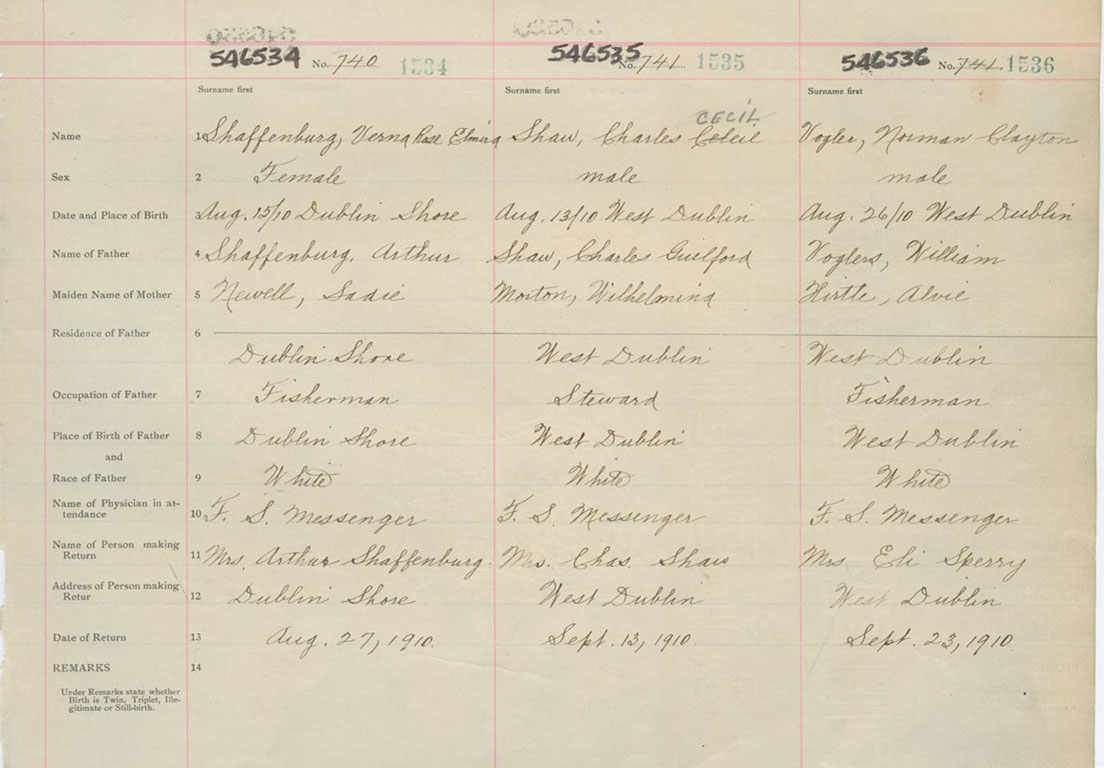 546534 No. 740 1534 546535 No. 741 1535 546536 No. 741 1536
Surname first Surname first Surname first
CECIL
Name 1 Shaffenburg, Verna Rose Elmira Shaw, Charles Celeil Vogler, Norman Clayton
Sex 2 Female male male
Date and Place of Birth 3 Aug. 15/10 Dublin Shore Aug. 13/10 West Dublin Aug. 26/10 West Dublin
Name of Father 4 Shaffenburg, Arthur Shaw, Charles Guilford Voglers, William
Maiden Name of Mother 5 Newell, Sadie Morton, Wilhelmina Hirtle, Alvie
Residence of Father 6
Dublin Shore West Dublin West Dublin
Occupation of Father 7 Fisherman Steward Fisherman
Place of Birth of Father 8 Dublin Shore West Dublin West Dublin
and
Race of Father 9 White White White
Name of Physician in at-
tendance 10 F. S. Messenger F. S. Messenger F. S. Messenger
Name of Person making
Return 11 Mrs. Arthur Shaffenburg. Mrs. Chas. Shaw Mrs Eli Sperry
Address of Person making
Retur 12 Dublin Shore West Dublin West Dublin
Date of Return 13 Aug. 27, 1910. Sept. 13, 1910. Sept. 23, 1910
REMARKS 14
Under Remarks state whether
Birth is Twin, Triplet, Ille-
gitimate or Still-birth.